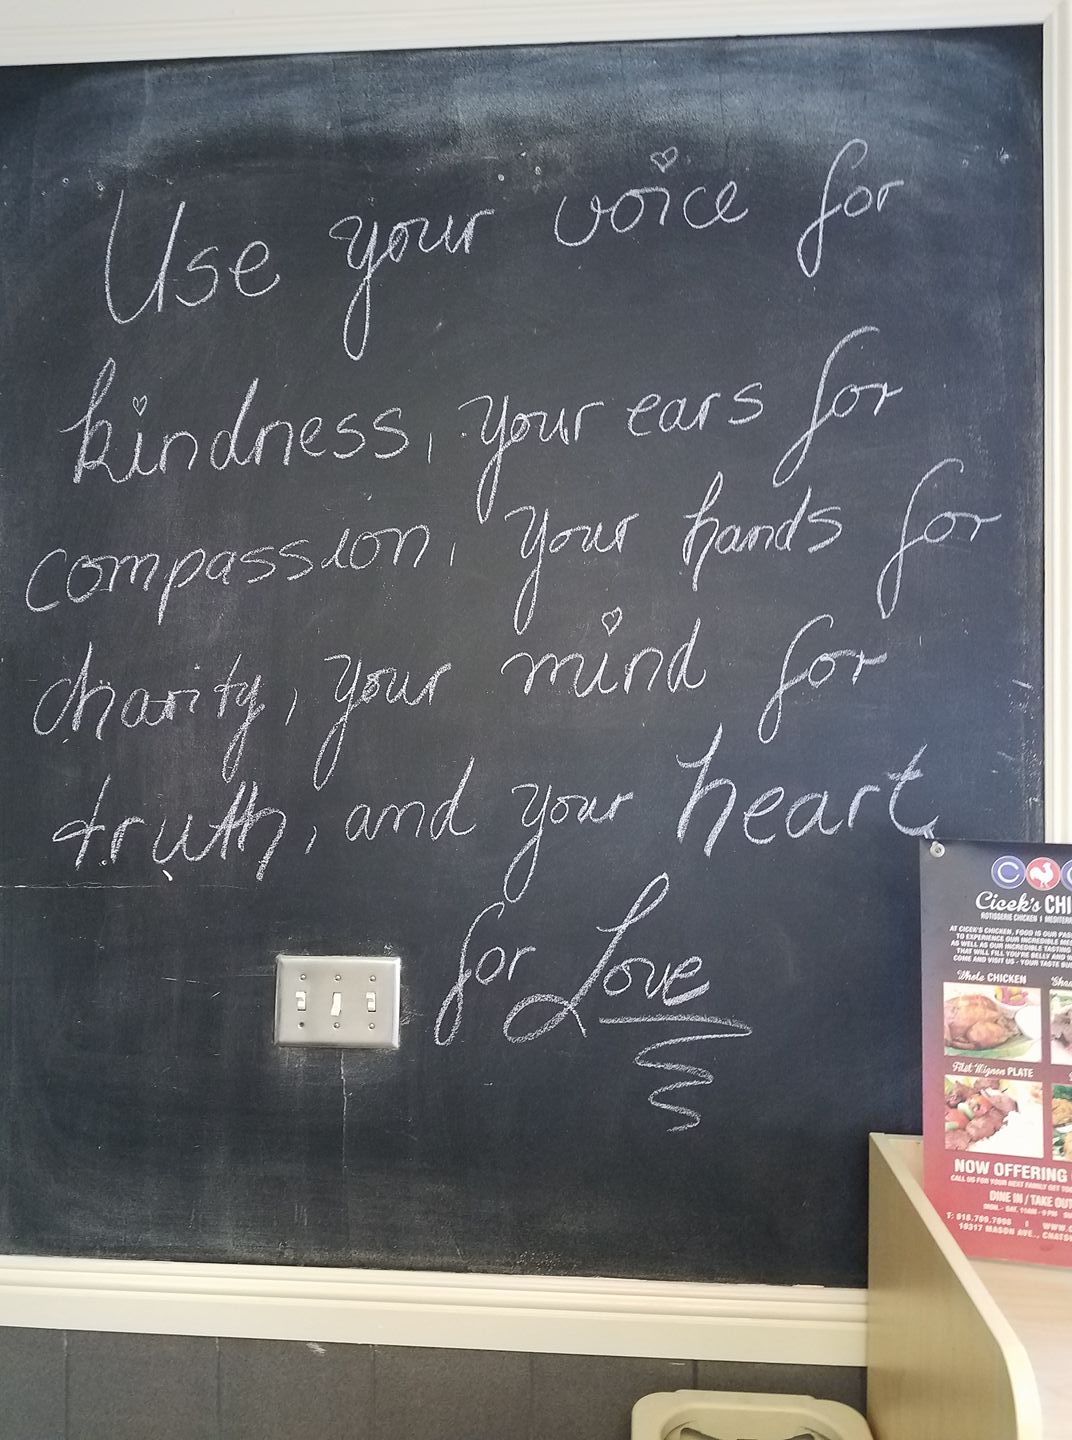 Use your voice for
kindness, your ears for
compassion, your hands for
charity, your mind for
truth, and your heart
for Love
Cicek's CHI
ROTISSERIE CHICKEN | MEDITER
AT CICEK'S CHICKEN, FOOD IS OUR
TO EXPERIENCE OUR INCREDIBLE
AS WELL AS OUR INCREDIBLE TASTING
THAT WILL FILL YOU'RE BELLY AND
COME AND VISIT US - YOUR TASTE
Whole CHICKEN
Filet Mignon PLATE
NOW OFFERING
CALL US FOR YOUR NEXT FAMILY GET
DINE IN / TAKE OUT
MON. - SAT. 11AM - 9PM
T: 818.709.7998 | WWW.
10317 MASON AVE., CHATS